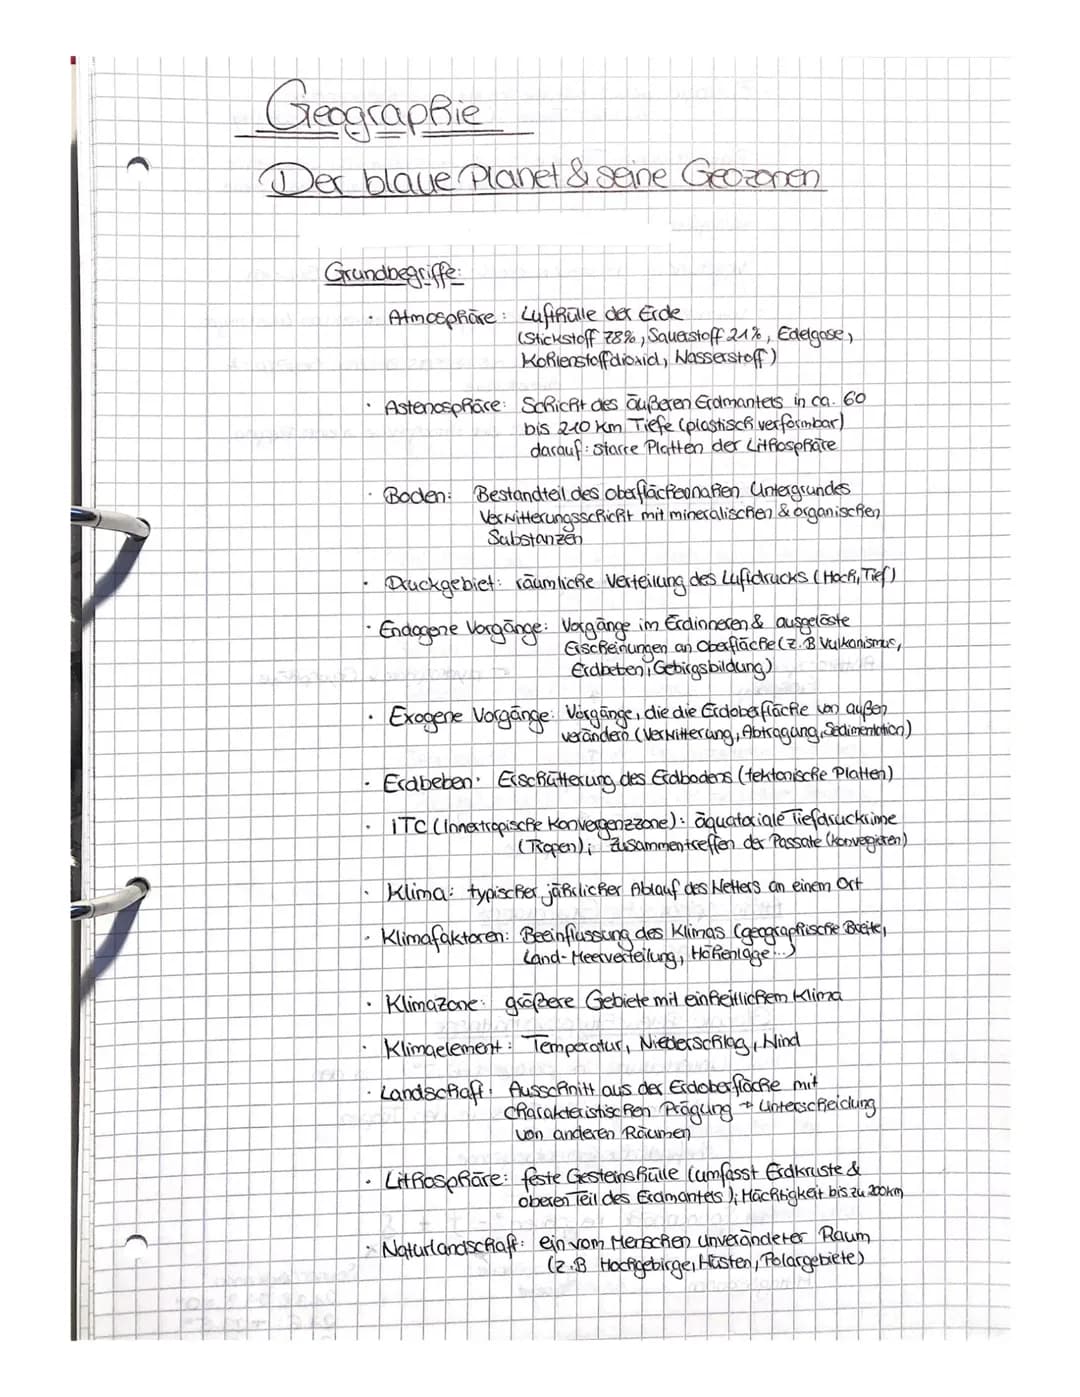 Geographie
Der blaue Planet & seine Geozonen
Grundbegriffe:
· Atmosphäre: Lufthülle der Erde
(Stickstoff 78%, Sauerstoff 21%, Edelgase,
Kohlenstoffdioxid, Wasserstoff)
· Astenosphäre: Schicht des äußeren Erdmantels in ca. 60
bis 210 km Tiefe (plastisch verformbar)
darauf: starre Platten der Lithosphäre
· Boden: Bestandteil des oberflächennahen Untergrundes
Verwitterungsschicht mit mineralischen & organischen
Substanzen
· Druckgebiet: räumliche Verteilung des Luftdrucks (Hoch, Tief)
· Endogene Vorgänge: Vorgänge im Erdinneren & ausgelöste
Erscheinungen an Oberfläche (z.B Vulkanismus,
Erdbeben, Gebirgsbildung)
· Exogene Vorgänge: Vorgänge, die die Erdoberfläche von außen
verändern (Verwitterung, Abtragung, Sedimentation)
· Erdbeben: Erschütterung des Erdbodens (tektonische Platten)
· iTC (Innertropische Konvergenzzone): äquatoriale Tiefdruckrinne
(Tropen); Zusammentreffen der Passate (konvegieren)
· Klima: typischer jährlicher Ablauf des Wetters an einem Ort
· Klimafaktoren: Beeinflussung des Klimas (geographische Breite,
Land-Meerverteilung, Höhenlage...)
· Klimazone: größere Gebiete mit einheitlichem Klima
· Klimaelement: Temperatur, Niederschlag, Wind
· Landschaft: Ausschnitt aus der Erdoberfläche mit
charakteristischen Prägung → Unterscheidung
von anderen Räumen
· Lithosphäre: feste Gesteinshülle (umfasst Erdkruste &
oberen Teil des Erdmantels); Mächtigkeit bis zu 200km
· Naturlandschaft: ein vom Menschen unveränderter Raum
(z.B Hochgebirge, Wüsten, Polargebiete)